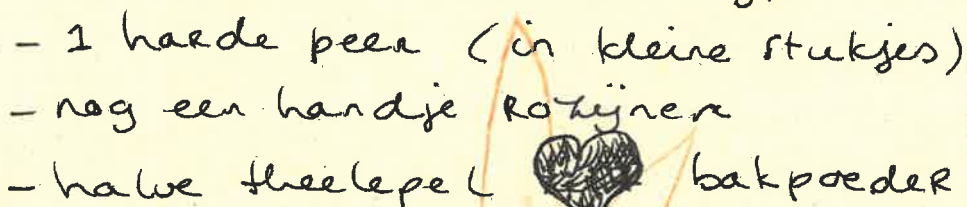 - 1 harde peer (in kleine stukjes)
- nog een handje Rozijnen
- halve theelepel bakpoedeR